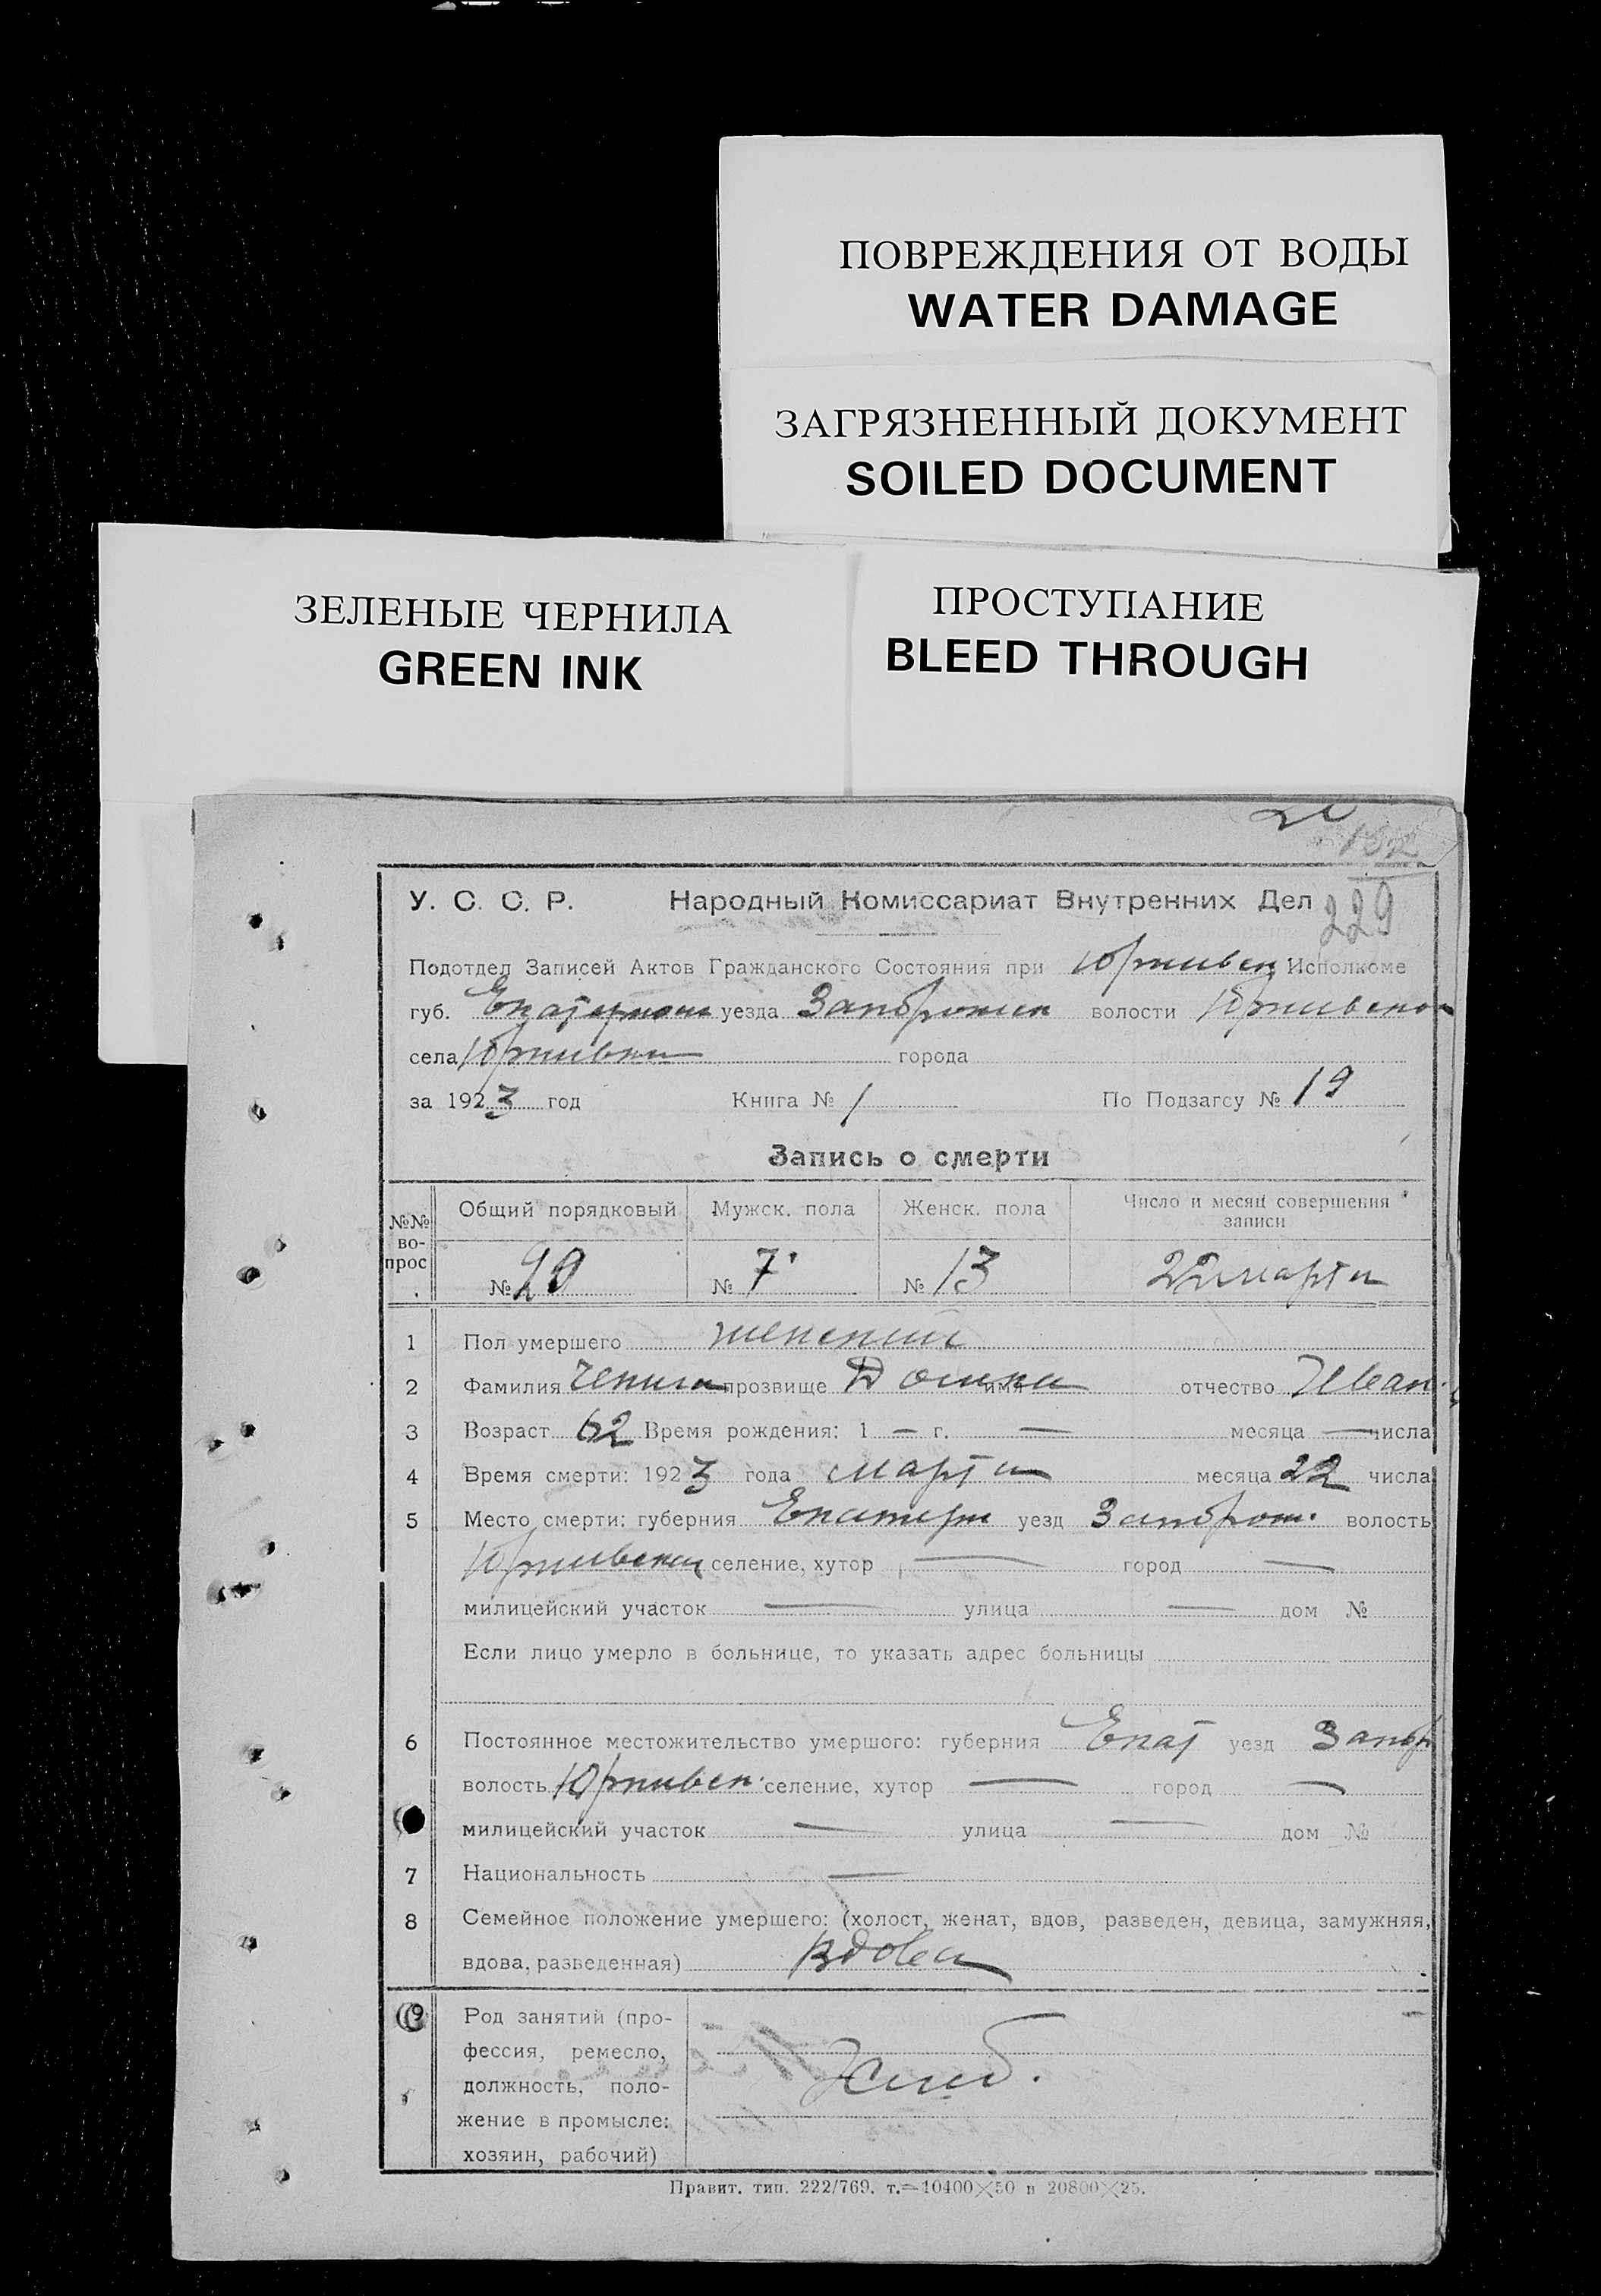 ПОВРЕЖДЕНИЯ ОТ ВОДЫ
WATER DAMAGE
ЗАГРЯЗНЕННЫЙ ДОКУМЕНТ
SOILED DOCUMENT
ЗЕЛЕНЫЕ ЧЕРНИЛА
GREEN INK
ПРОСТУПАНИЕ
BLEED THROUGH
182
229
У. С. С. Р. Народный Комиссариат Внутренних Дел
Подотдел Записей Актов Гражданского Состояния при Юрпивск Исполкоме
губ. уезда волости
села города
за 1923 год Книга № 1 По Подзагсу № 19
Запись о смерти
№№ вопрос
Общий порядковый Мужск. пола Женск. пола Число и месяц совершения записи
№ 20 № 7 № 13 22 марта
1 Пол умершего женский
2 Фамилия прозвище имя отчество Иван.
3 Возраст 62 Время рождения: 1 — г. — месяца — числа
4 Время смерти: 1923 года марта месяца 22 числа
5 Место смерти: губерния Екатери уезд Запорож. волость
селение, хутор — город —
милицейский участок — улица — дом №
Если лицо умерло в больнице, то указать адрес больницы
6 Постоянное местожительство умершего: губерния Екат уезд Запор
волость селение, хутор — город —
милицейский участок — улица — дом №
7 Национальность —
8 Семейное положение умершего: (холост, женат, вдов, разведен, девица, замужняя,
вдова, разведенная) Вдова
9 Род занятий (про-
фессия, ремесло,
должность, поло-
жение в промысле:
хозяин, рабочий)
Правит. тип. 222/769. т.—10400×50 и 20800×25.